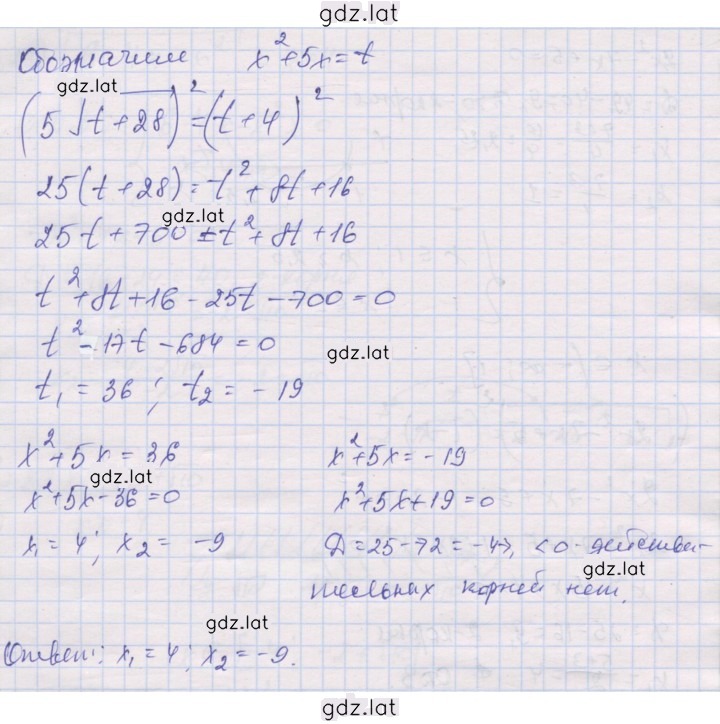 gdz.lat
Обозначим x²+5x=t
gdz.lat
(5√t+28)²=(t+4)²
25(t+28)=t²+8t+16
gdz.lat
25t+700=t²+8t+16
t²+8t+16-25t-700=0
t²-17t-684=0
gdz.lat
t₁=36; t₂=-19
x²+5x=36
x²+5x=-19
gdz.lat
x²+5x-36=0
x²+5x+19=0
x₁=4; x₂=-9
Д=25-72=-47, <0-действи-
gdz.lat
тельных корней нет.
gdz.lat
Ответ: x₁=4; x₂=-9.
gdz.lat